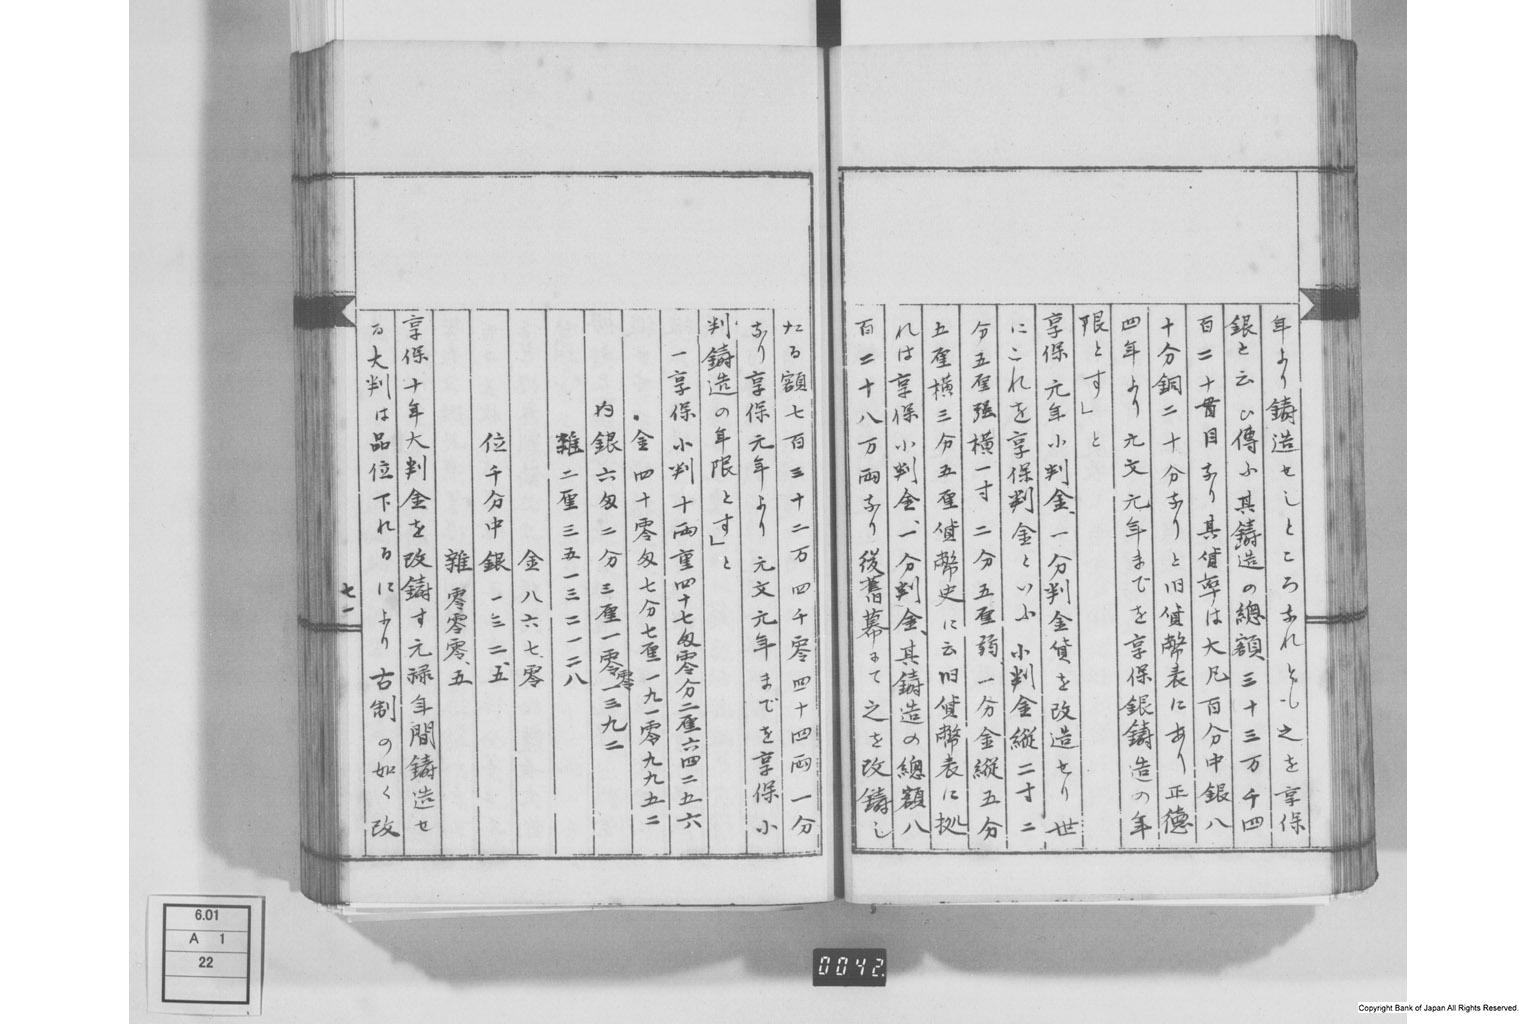 年より鋳造せしところなれとも之を享保
銀と云ひ傳ふ其鋳造の總額三十三万千四
百二十貫目なり其貨率は大凡百分中銀八
十分銅二十分なりと旧貨幣表にあり正徳
四年より元文元年までを享保銀鋳造の年
限とす」と
享保元年小判金、一分判金貨を改造せり世
にこれを享保判金といふ小判金縦二寸二
分五厘强横一寸二分五厘弱、一分金縦五分
五厘横三分五厘貨幣史に云旧貨幣表に拠
れは享保小判金、一分判金、其鋳造の總額八
百二十八万両なり後舊幕にて之を改鋳し
たる額七百三十二万四千零四十四両一分
なり享保元年より元文元年までを享保小
判鋳造の年限とす」と
一享保小判十両重四十七匁零分二厘六四二五六
金四十零匁七分七厘一九一零九九五二
内銀六匁二分三厘一零零一三九二
雜二厘三五一三二一二八
金八六七、零
位千分中銀一三二、五
雜零零零、五
享保十年大判金を改鋳す元禄年間鋳造せ
る大判は品位下れるにより古制の如く改
七一
6.01
A 1
22
0042
Copyright Bank of Japan All Rights Reserved.